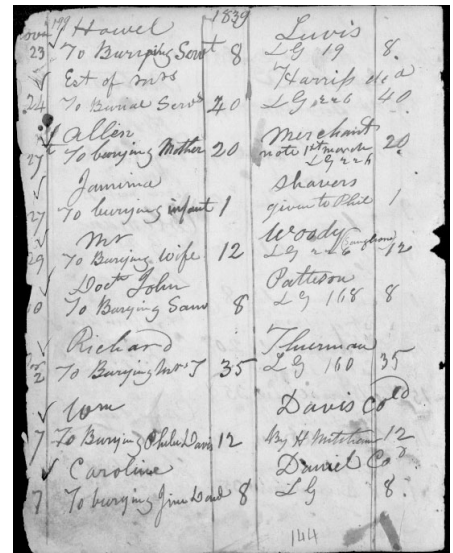 1839
Howel Lewis
23 To Burying Servt 8 LG 19 8
Est of Mrs Harris decd
24 To Burial Servs 40 LG 226 40
Allen Merchant
27 To burying Mother 20 note 1st march 20
LG 226
Jamima Shavers
27 To burying infant 1 given to Phil 1
Mr Woody
29 To Burying Wife 12 LG 226 12
Doct John Patteson
0 To Burying Sam 8 LG 168 8
Richard Thurman
2 To Burying Mrs T 35 LG 160 35
Wm Davis Cold
7 To Burying Davis 12 By H Mitchem 12
Caroline Daniel Cod
7 To burying 8 LG 8
144